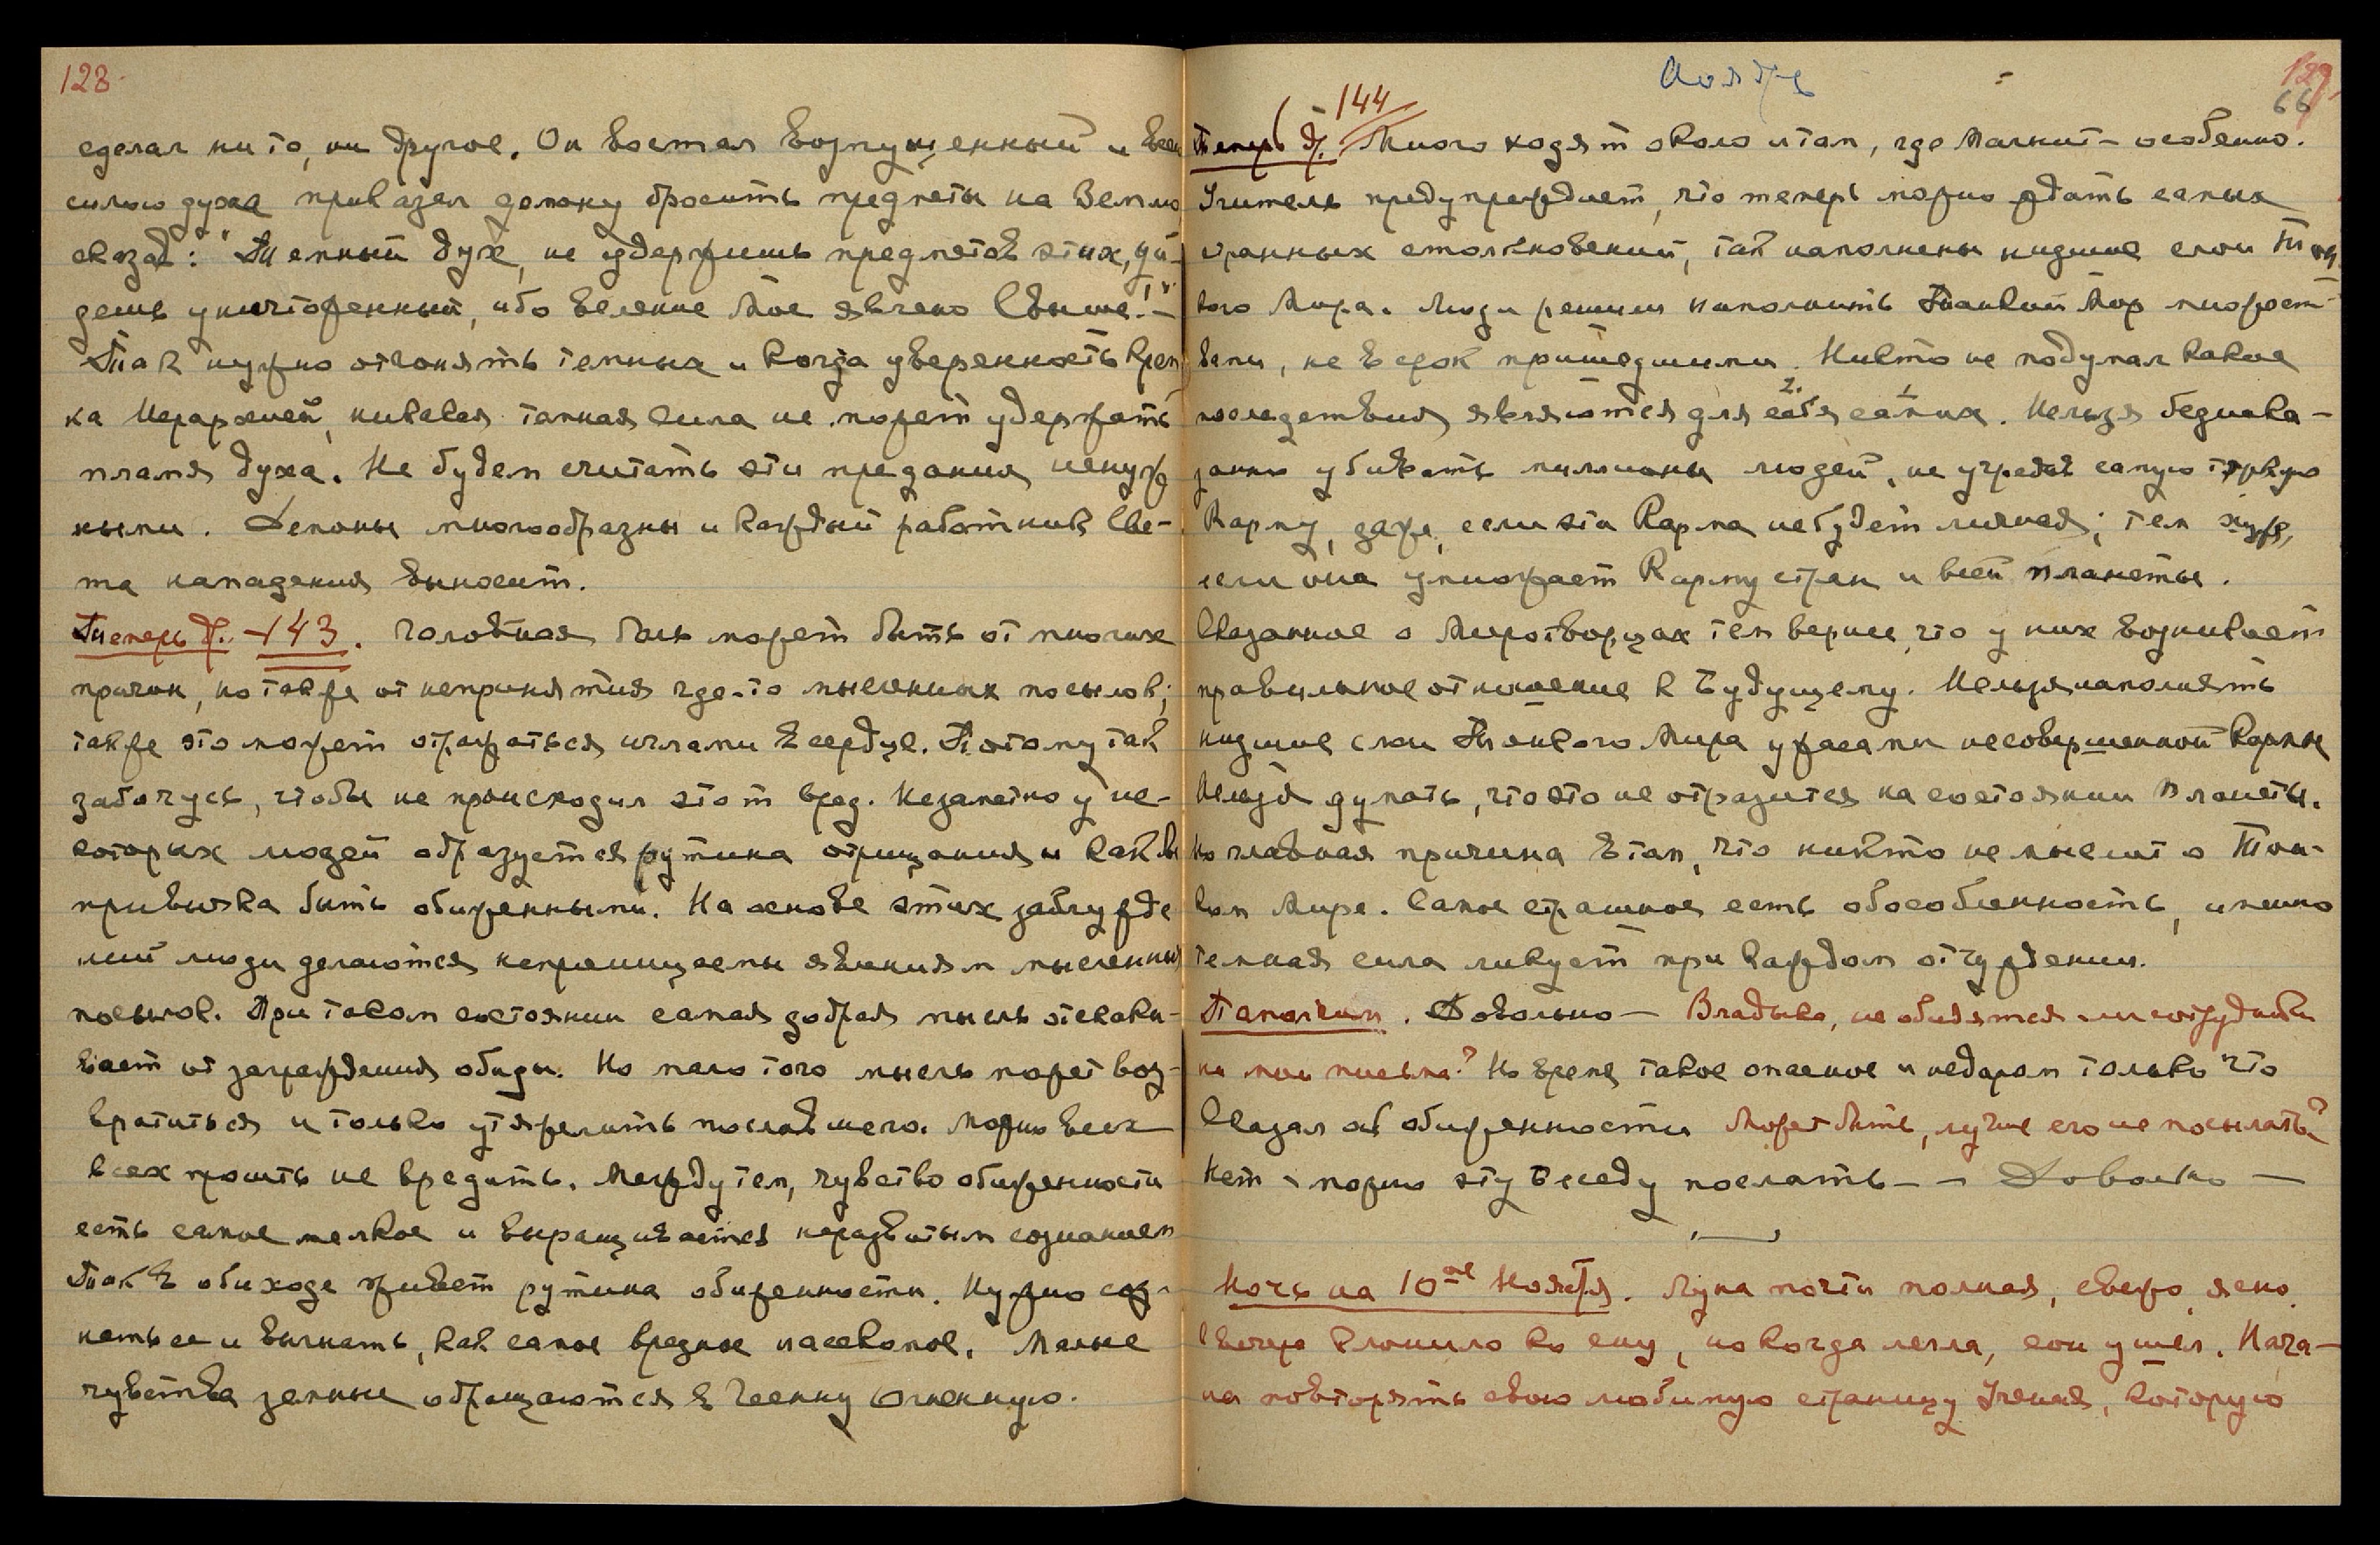 128.
сделал ни то, ни другое. Он восстал возмущенный и всею
силою духа приказал демону бросить предметы на Землю
сказав: "Темный дух, не удержишь предметов этих, уй-
дешь уничтоженный, ибо веление Мое явлено Свыше!" –
Так нужно отгонять темных и когда уверенность креп
ка Иерархией, никакая темная сила не может удержать
пламя духа. Не будем считать эти предания ненуж
ными. Демоны многообразны и каждый работник Све-
та нападения выносит.
Теперь др. – 143. Головная боль может быть от многих
причин, но также от непринятия где-то мысленных посылов;
также это может отражаться иглами в сердце. Потому так
забочусь, чтобы не происходил этот вред. Незаметно у не-
которых людей образуется рутина отрицания и как бы
привычка быть обиженными. На основе этих заблужде
ний люди делаются непроницаемы явлениям мысленных
посылов. При таком состоянии самая добрая мысль отскаки-
вает от заграждения обиды. Но мало того мысль может воз-
вратиться и только утяжелить пославшего. Можно всех
всех просить не вредить. Между тем, чувство обиженности
есть самое мелкое и выращивается неразвитым сознанием
Так в обиходе живет рутина обиженности. Нужно соз-
нать ее и выгнать, как самое вредное насекомое. Малые
чувства земные обращаются в Геенну Огненную.
Ноябрь
129.
66
Теперь др. 144 Много ходят около и там, где Магнит – особенно.
Учитель предупреждает, что теперь можно ждать самых
странных столкновений, так наполнены низшие слои Тон
кого Мира. Люди решили наполнить Тонкий Мир множест-
вами, не в срок пришедшими. Никто не подумал какие
последствия являются для себя 2. самих 1. Нельзя безнака-
занно убивать миллионы людей, не учредив самую тяжкую
Карму, даже, если эта Карма не будет личная; тем хуже,
если она умножает Карму стран и всей планеты.
Сказанное о Миротворцах тем вернее, что у них возникает
правильное отношение к Будущему. Нельзя наполнять
низшие слои Тонкого Мира ужасами несовершенной Кармы
Нельзя думать, что это не отразится на состоянии Планеты.
Но главная причина в том, что никто не мыслит о Тон-
ком Мире. Самое страшное есть обособленность, именно
темная сила ликует при каждом отчуждении.
Помолчим. Довольно – Владыко, не обидятся ли сотрудники
на мои письма? Но время такое опасное и недаром только что
Сказал об обиженности Может быть, лучше его не посылать?
Нет – можно эту Беседу послать – – Довольно –
Ночь на 10ое Ноября. Луна почти полная, свежо, ясно.
Вечером клонило ко сну, но когда легла, сон ушел. Нача-
ла повторять свою любимую страницу Учения, которую